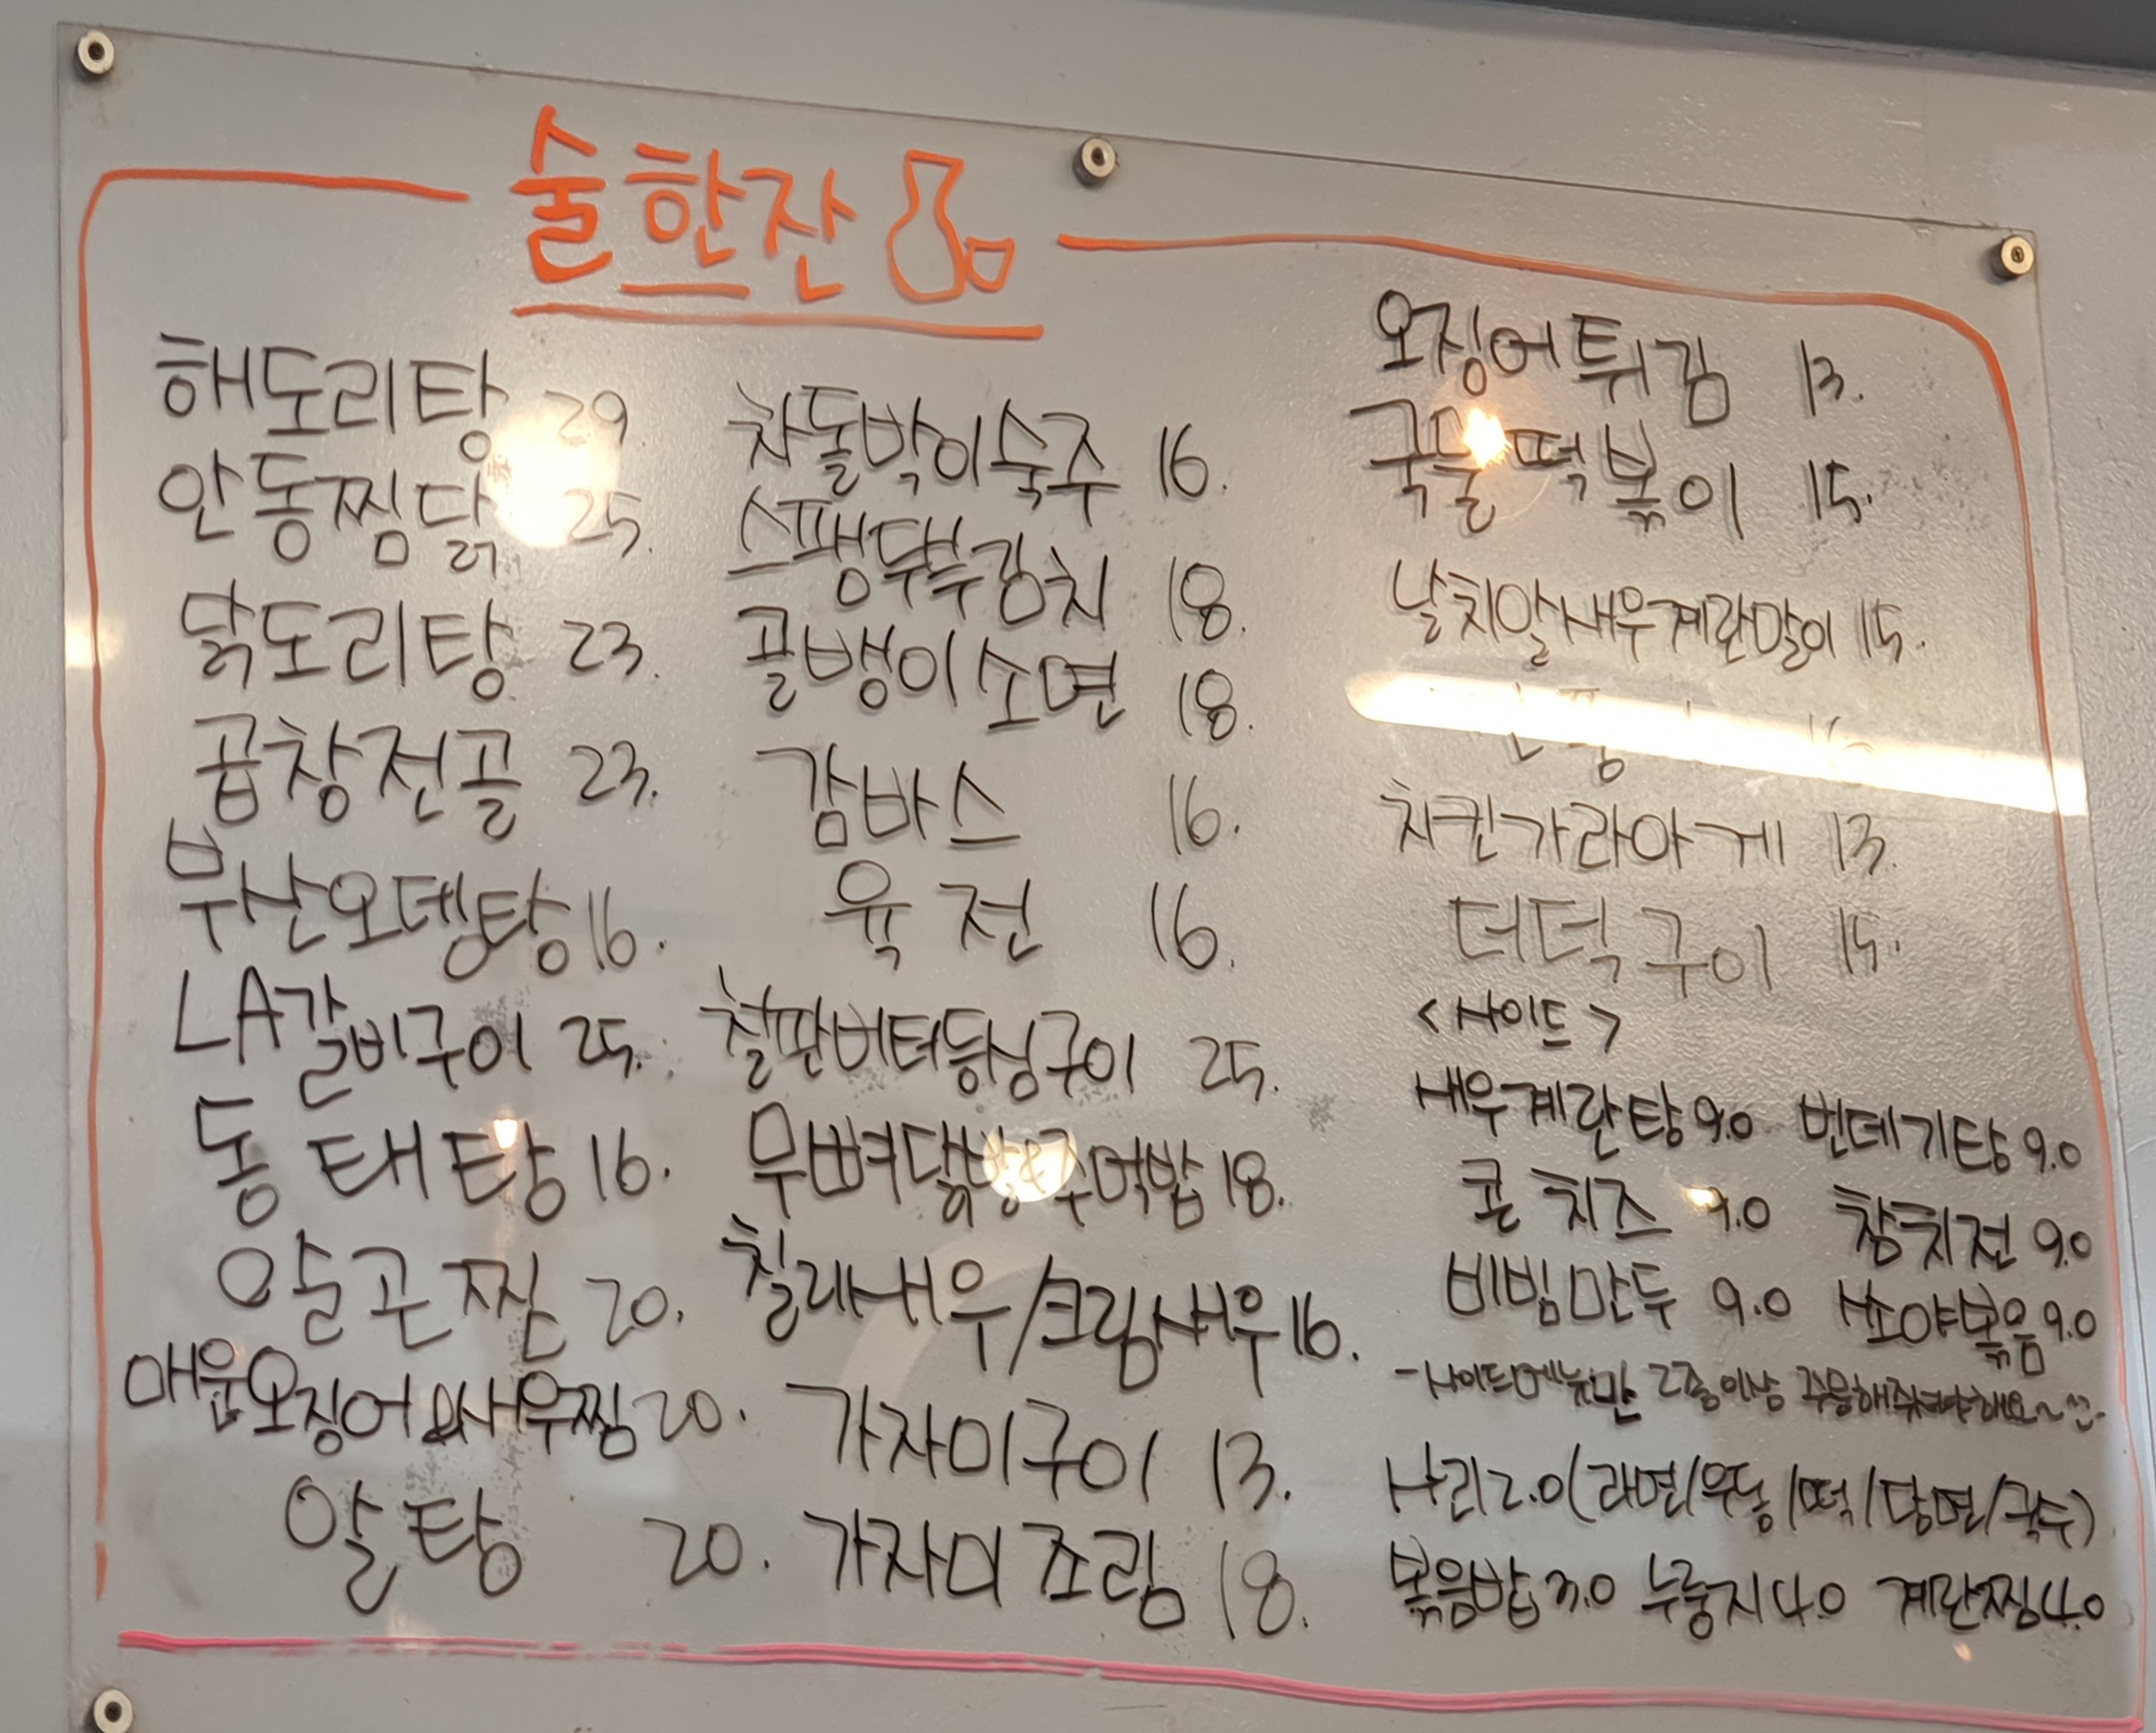 술한잔
해도리탕 29
안동찜닭 25.
닭도리탕 23.
곱창전골 23.
부산오뎅탕 16.
LA갈비구이 25.
동태탕 16.
알곤찜 20.
매운오징어&새우찜 20.
알탕 20.
차돌박이숙주 16.
스팸두부김치 18.
골뱅이소면 18.
감바스 16.
육전 16.
철판버터등심구이 25.
무뼈닭발&주먹밥 18.
칠리새우/크림새우 16.
가자미구이 13.
가자미조림 18.
오징어튀김 13.
국물떡볶이 15.
날치알새우계란말이 15.
치킨가라아게 13.
더덕구이 15.
<사이드>
새우계란탕 9.0 번데기탕 9.0
콘치즈 9.0 참치전 9.0
비빔만두 9.0 쏘야볶음 9.0
-사이드메뉴만 2종이상 주문해주셔야해요~^^-
사리 2.0(라면/우동/떡/당면/국수)
볶음밥 3.0 누룽지 4.0 계란찜 4.0